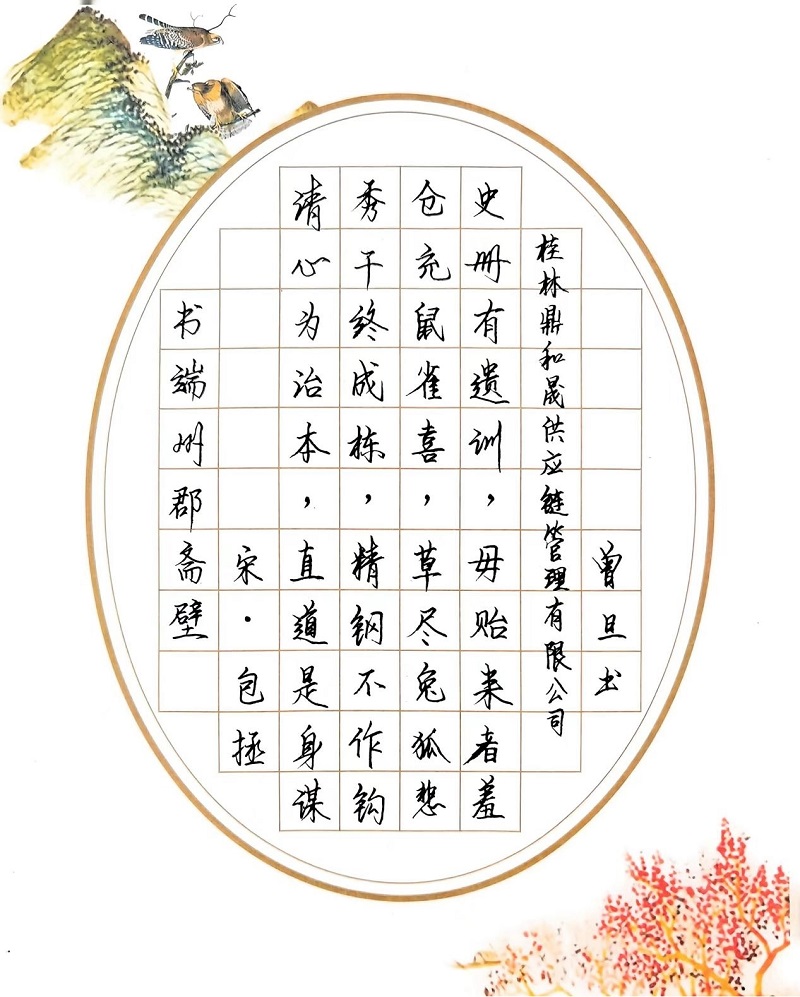 书端州郡斋壁
宋·包拯
清心为治本，直道是身谋
秀干终成栋，精钢不作钩
仓充鼠雀喜，草尽兔狐愁
史册有遗训，毋贻来者羞
桂林鼎和晟供应链管理有限公司
曾旦书